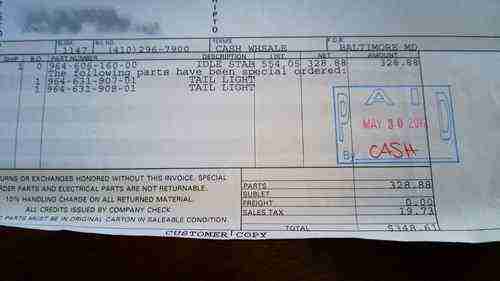 T
O
TERMS
F.O.B.
1147 (410)296-7900 CASH WHSALE BALTIMORE MD
SHIP B.O. PART NUMBER DESCRIPTION LIST NET AMOUNT
1 0 964-606-160-00 IDLE STAB 554.05 328.88 328.88
The following parts have been special ordered:
1 964-631-907-01 TAIL LIGHT
1 964-631-908-01 TAIL LIGHT
PAID
MAY 30
By CASH
URNS OR EXCHANGES HONORED WITHOUT THIS INVOICE. SPECIAL
DER PARTS AND ELECTRICAL PARTS ARE NOT RETURNABLE.
10% HANDLING CHARGE ON ALL RETURNED MATERIAL.
ALL CREDITS ISSUED BY COMPANY CHECK
PARTS MUST BE IN ORIGINAL CARTON IN SALEABLE CONDITION.
PARTS 328.88
SUBLET
FREIGHT 0.00
SALES TAX 19.73
TOTAL $348.61
CUSTOMER COPY